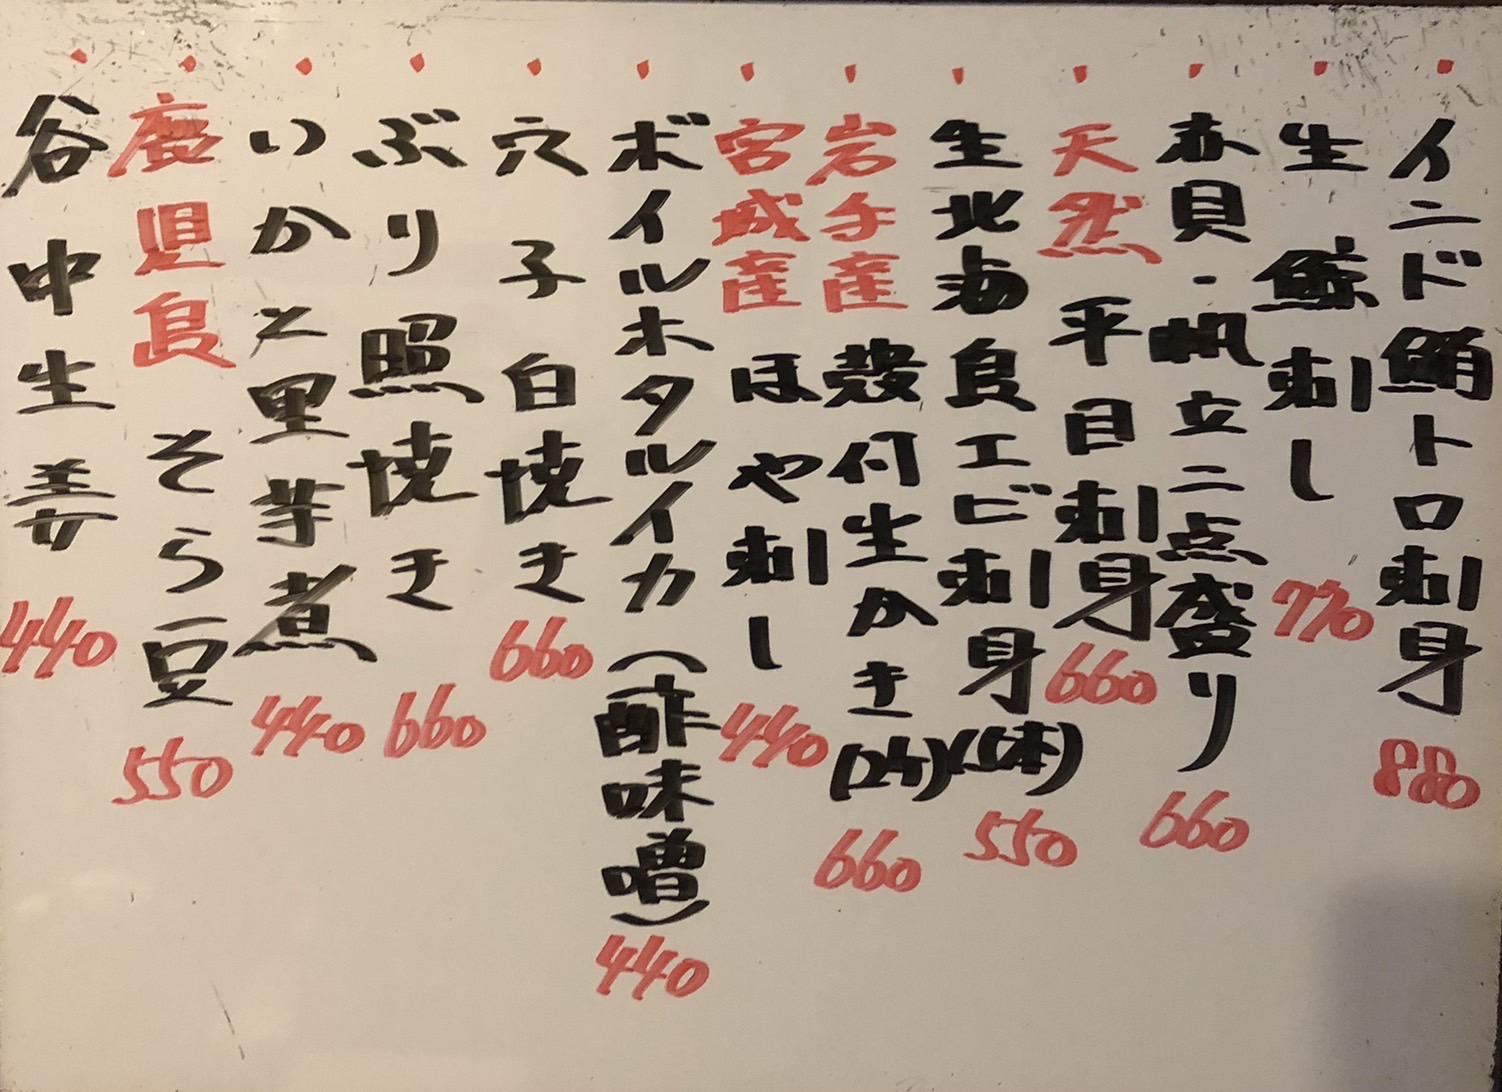 インド鮪トロ刺身 880
生鯨刺し 770
赤貝・帆立二点盛り 660
天然平目刺身 660
生北海島エビ刺身(5本) 550
岩手産殻付生かき(2ケ) 660
宮城産ほや刺し 440
ボイルホタルイカ(酢味噌) 440
穴子白焼き 660
ぶり照焼き 660
いかと里芋煮 440
鹿児島そら豆 550
谷中生姜 440